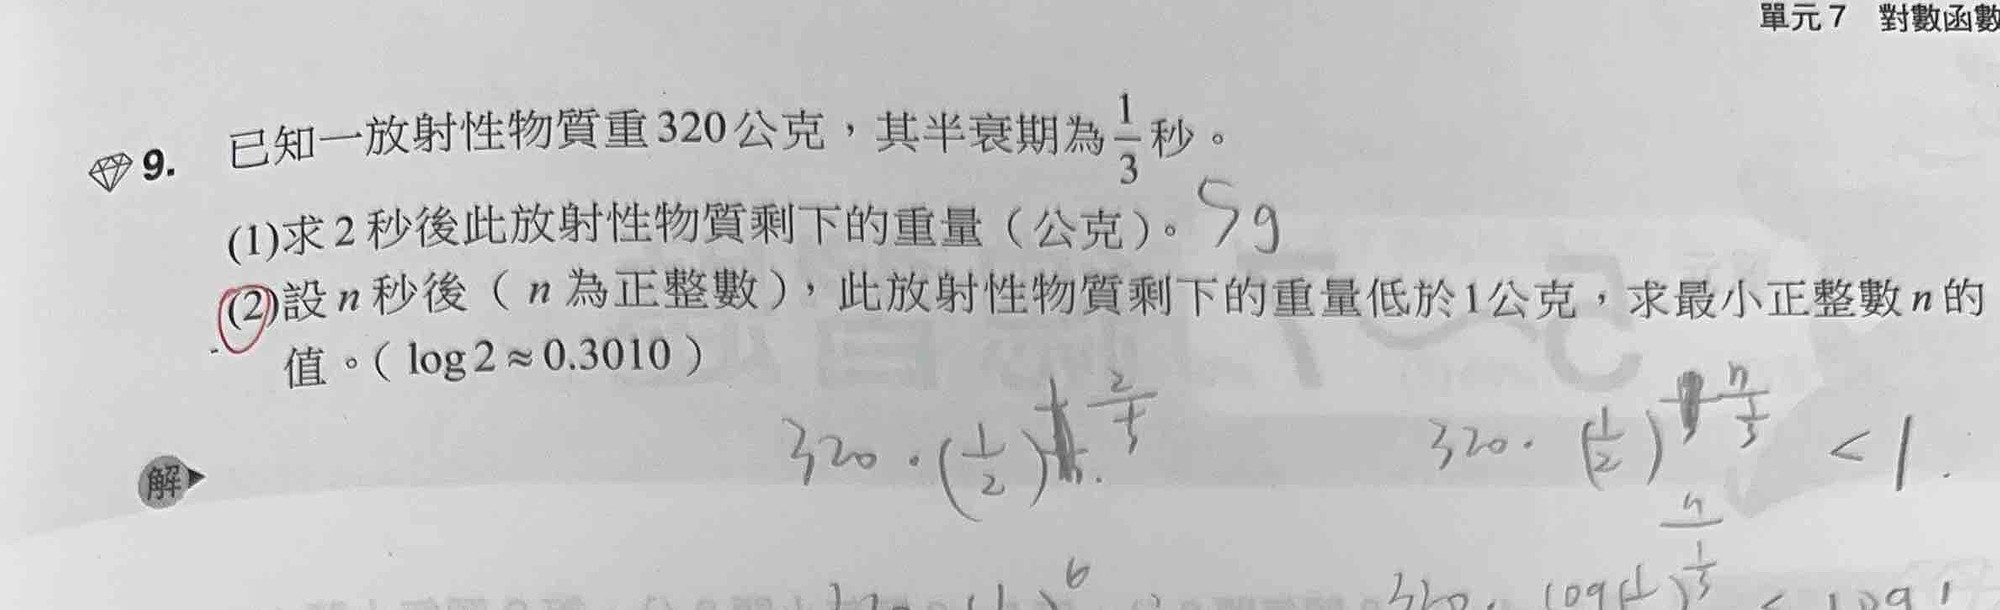 單元 7 對數函數
9. 已知一放射性物質重 320 公克，其半衰期為 1/3 秒。
(1)求 2 秒後此放射性物質剩下的重量（公克）。 5g
(2)設 n 秒後（ n 為正整數），此放射性物質剩下的重量低於 1 公克，求最小正整數 n 的
值。（ log 2 ≈ 0.3010 ）
320 · (1/2)^(2/(1/3)) 320 · (1/2)^(n/(1/3)) < 1
解